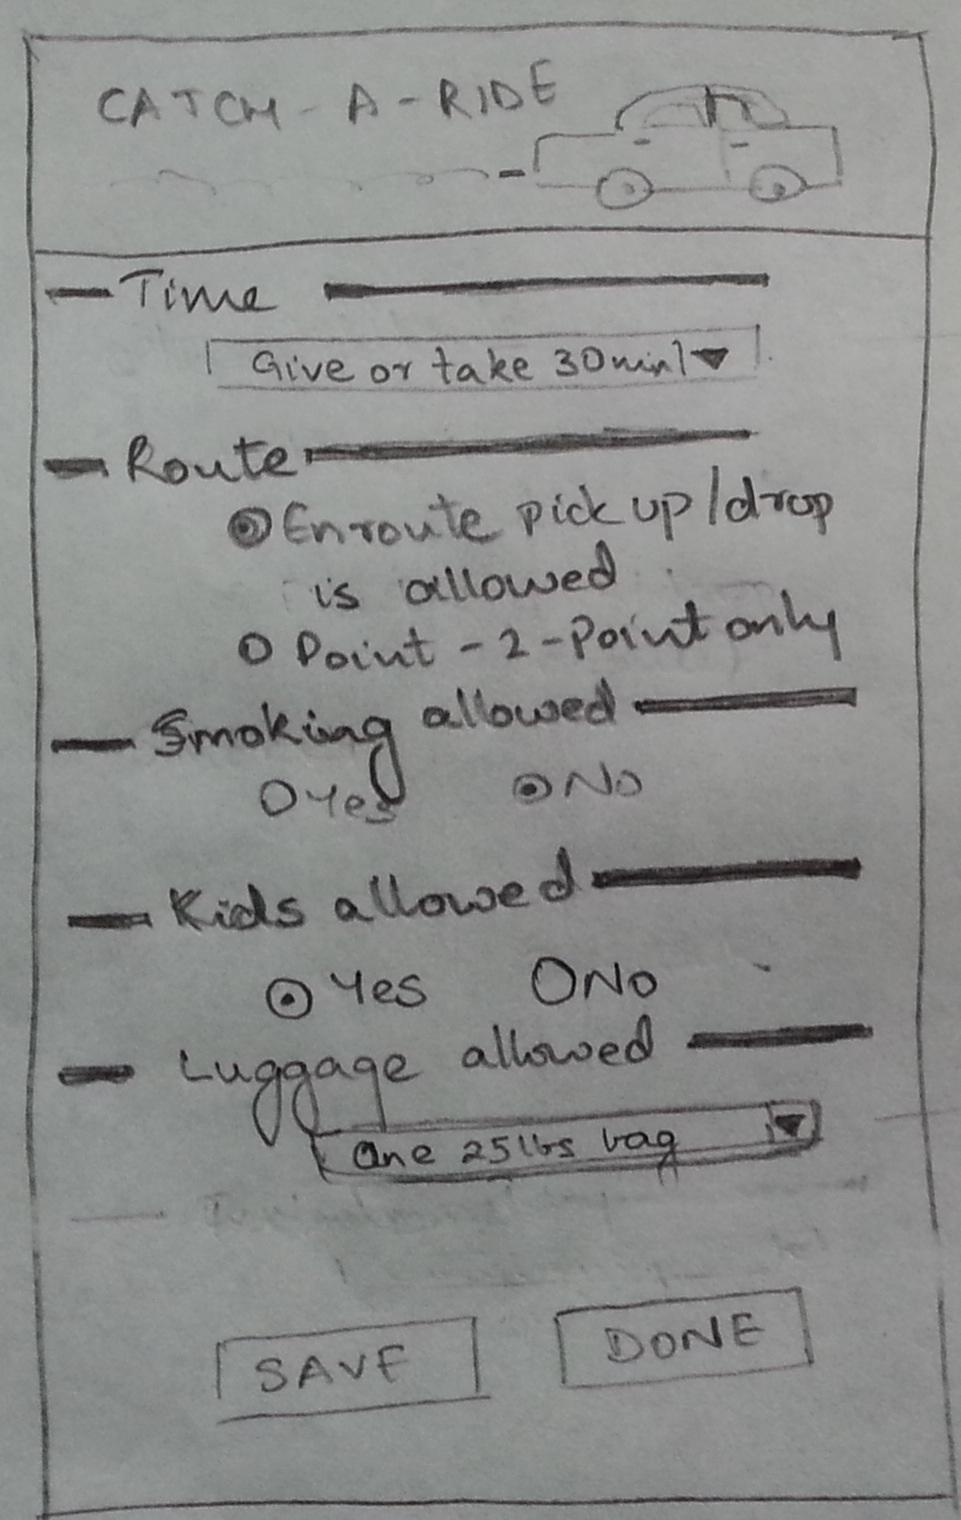 CATCH-A-RIDE
Time
Give or take 30min
Route
Enroute pick up/drop
is allowed
Point-2-Point only
Smoking allowed
Yes No
Kids allowed
Yes No
Luggage allowed
One 25lbs bag
SAVE DONE